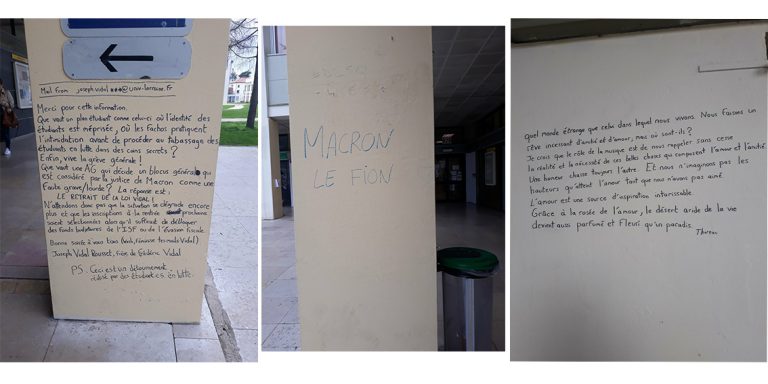 Mail from joseph.vidal ***@univ-lorraine.fr
Merci pour cette information.
Que vaut un plan étudiant comme celui-ci où l'identité des
étudiants est méprisée, où les fachos pratiquent
l'intimidation avant de procéder au tabassage des
étudiants en lutte dans des coins secrets ?
Enfin, vive la grève générale !
Que vaut une AG qui décide un blocus général qui
est considéré par la justice de Macron comme une
faute grave/lourde ? La réponse est :
LE RETRAIT DE LA LOI VIDAL !
N'attendons donc pas que la situation se dégrade encore
plus et que les inscriptions à la rentrée prochaine
soient sélectionnées alors qu'il suffirait de débloquer
des fonds budgétaires de l'ISF ou de l'évasion fiscale.
Bonne soirée à vous tous
Joseph Vidal Rousset, frère de Frédéric Vidal
PS. Ceci est un détournement
réalisé par des étudiant.e.s en lutte.
MACRON
LE FION
Quel monde étrange que celui dans lequel nous vivons. Nous faisons un
rêve incessant d'amitié et d'amour, mais où sont-ils ?
Je crois que le rôle de la musique est de nous rappeler sans cesse
la réalité et la nécessité de ces belles choses qui composent l'amour et l'amitié.
Une humeur chasse toujours l'autre. Et nous n'imaginons pas les
hauteurs qu'atteint l'amour tant que nous n'avons pas aimé.
L'amour est une source d'inspiration intarissable.
Grâce à la rosée de l'amour, le désert aride de la vie
devient aussi parfumé et fleuri qu'un paradis.
Thoreau